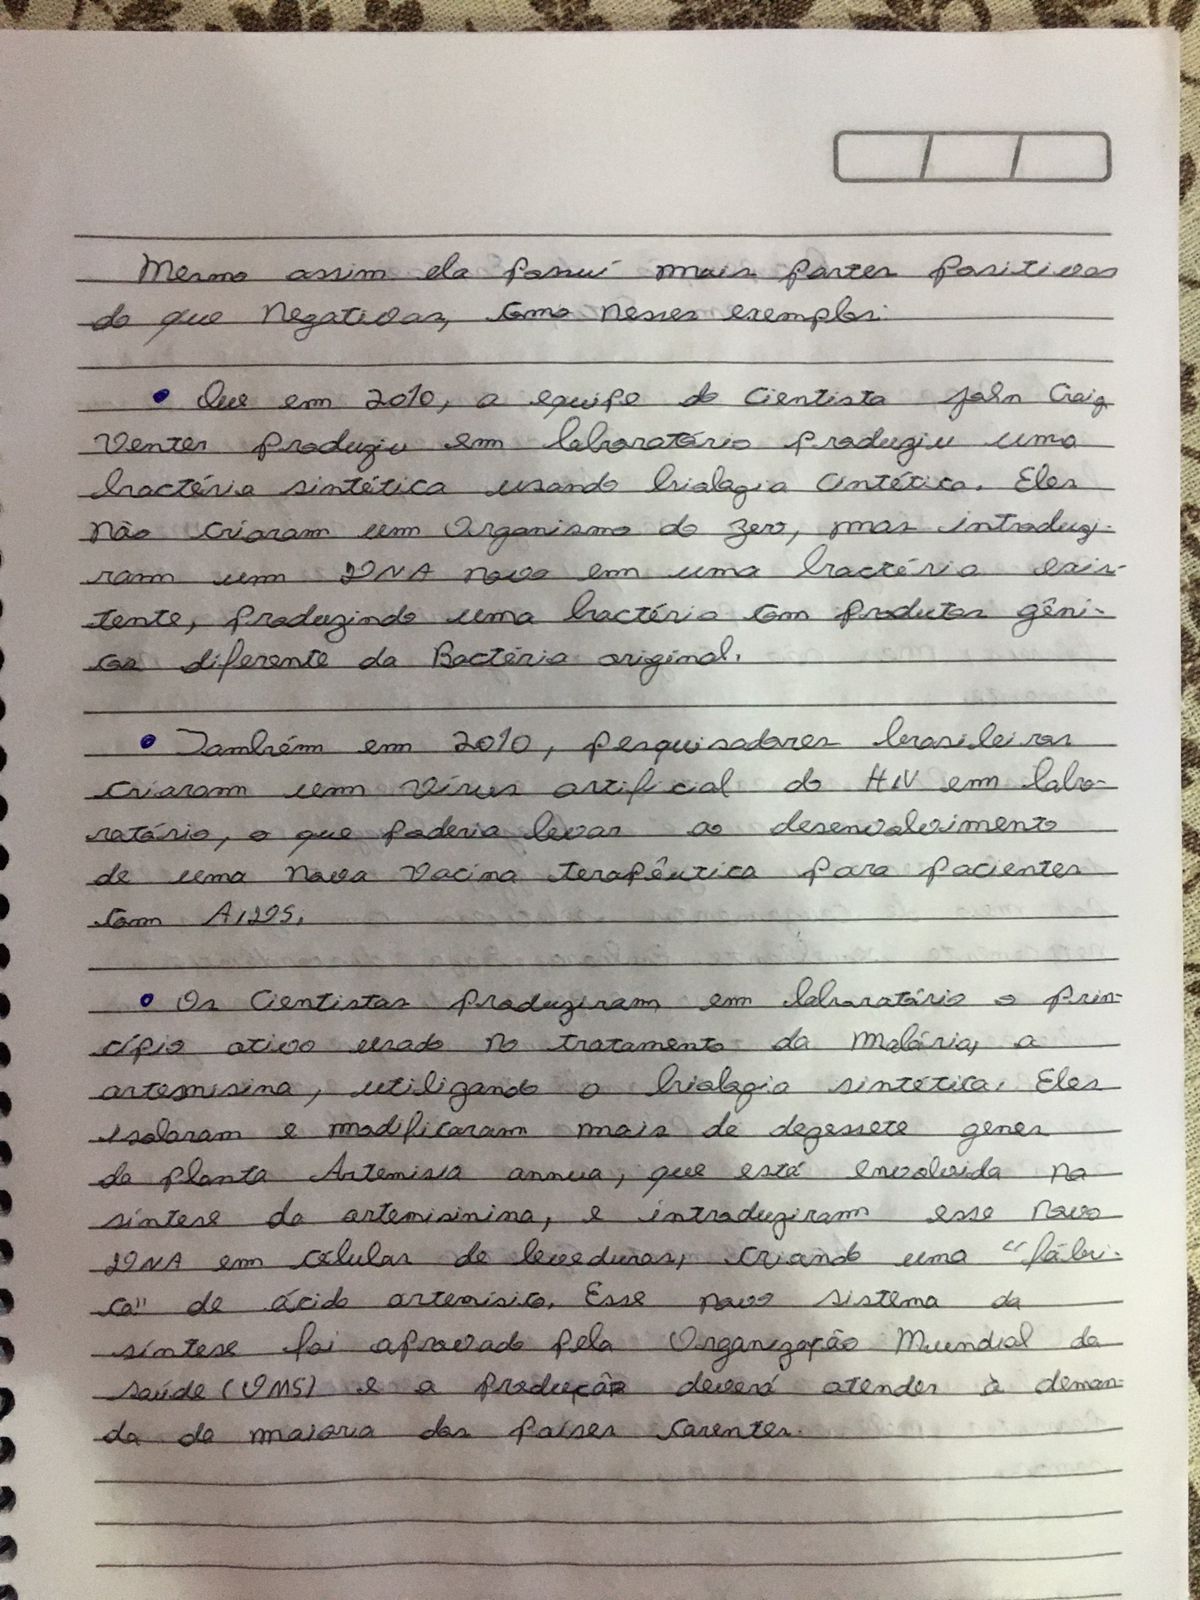 Mesmo assim ela possui mais partes positivas
do que Negativas, como nesses exemplos:
• Que em 2010, a equipe do cientista John Craig
Venter produziu em laboratório produziu uma
bactéria sintética usando biologia cintética. Eles
não criaram um organismo do zero, mas introduzi-
ram um DNA novo em uma bactéria exis-
tente, produzindo uma bactéria com produtos gêni-
cos diferente da Bactéria original.
• Também em 2010, pesquisadores brasileiros
criaram um vírus artificial do HIV em labo-
ratório, o que poderia levar ao desenvolvimento
de uma nova vacina terapêutica para pacientes
com AIDS.
• Os cientistas produziram em laboratório o prin-
cípio ativo usado no tratamento da Malária, a
artemisina, utilizando a biologia sintética. Eles
isolaram e modificaram mais de dezessete genes
da planta Artemisia annua, que está envolvida na
síntese da artemisinina, e introduziram esse novo
DNA em células de leveduras, criando uma "fábri-
ca" de ácido artemísico. Esse novo sistema da
síntese foi aprovado pela Organização Mundial da
saúde (OMS) e a produção deverá atender à deman-
da da maioria dos países carentes.